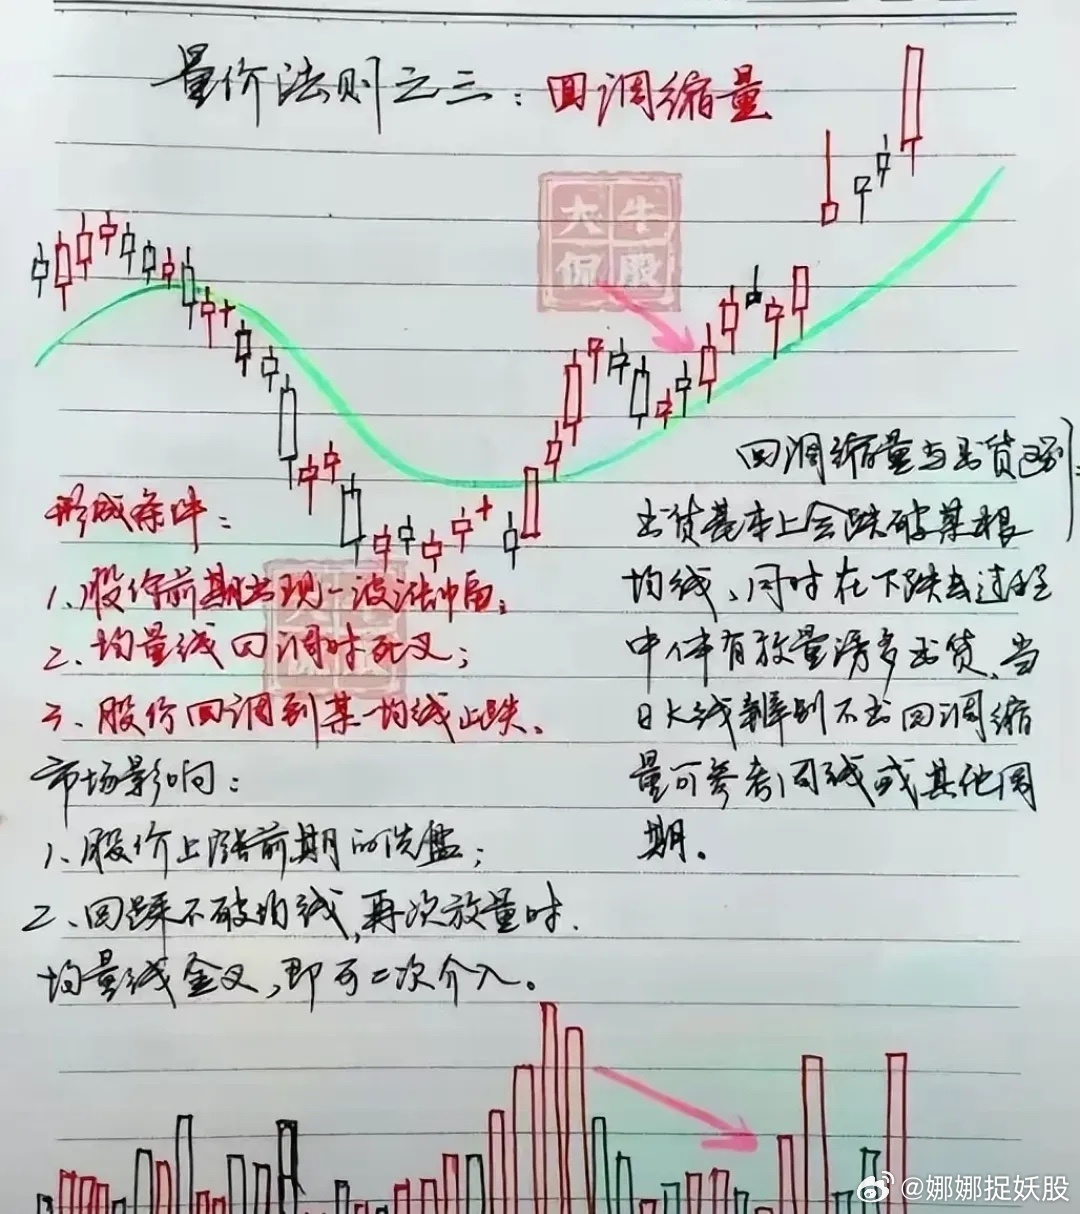 量价法则之三：回调缩量
大牛
侃股
回调缩量与出货区别：
出货基本上会跌破某根
均线、同时在下跌去过程
中伴有放量诱多出货、当
日K线辨别不出回调缩
量可参考周线或其他周
期。
形成条件：
1、股价前期出现一波涨幅；
2、均量线回调时死叉；
3、股价回调到某一均线止跌、
市场影响：
1、股价上涨前期的洗盘；
2、回踩不破均线，再次放量时.
均量线金叉，即可二次介入。
@娜娜捉妖股